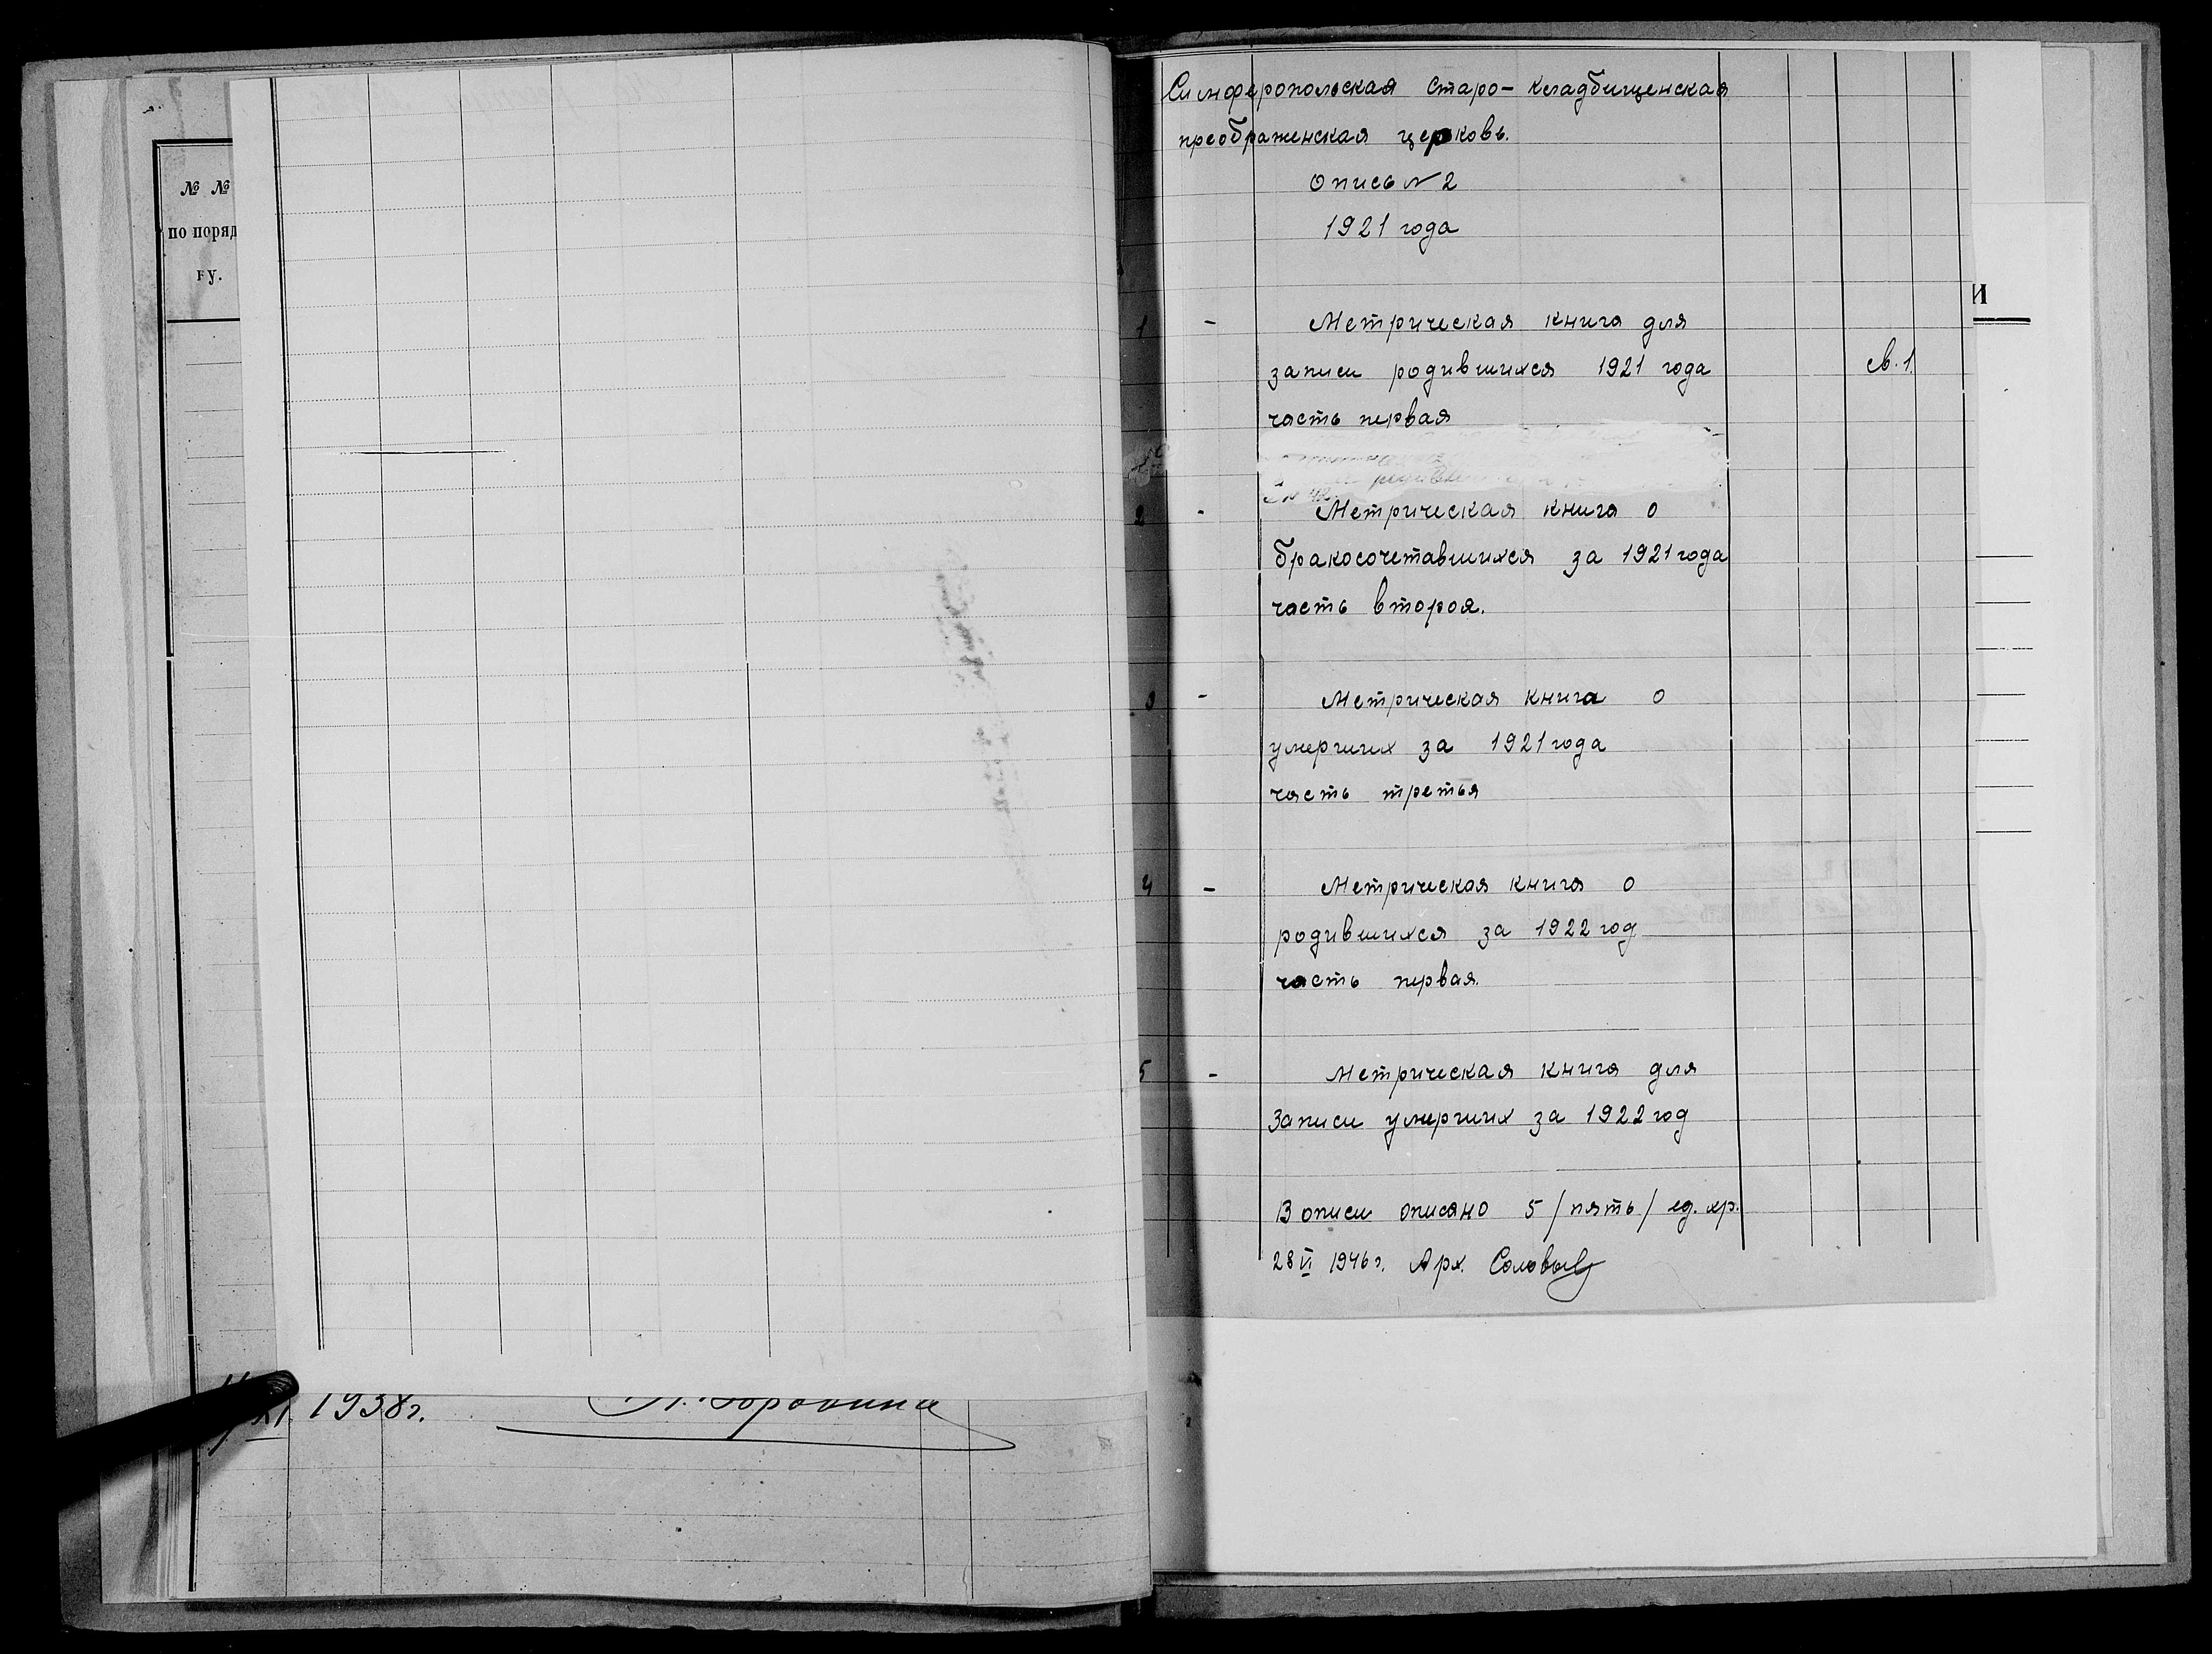 № №
по поряд
ку.
XI 1938 г.
Симферопольская Старо-кладбищенская
преображенская церковь.
Опись N 2
1921 года
И
1 - Метрическая книга для
записи родившихся 1921 года св. 1
часть первая
2 - Метрическая книга о
бракосочетавшихся за 1921 года
часть вторая.
3 - Метрическая книга о
умерших за 1921 года
часть третья
4 - Метрическая книга о
родившихся за 1922 год
часть первая.
5 - Метрическая книга для
Записи умерших за 1922 год
В описи описано 5 /пять/ ед. хр.
28 VI 1946 г. Арх. Соловьев